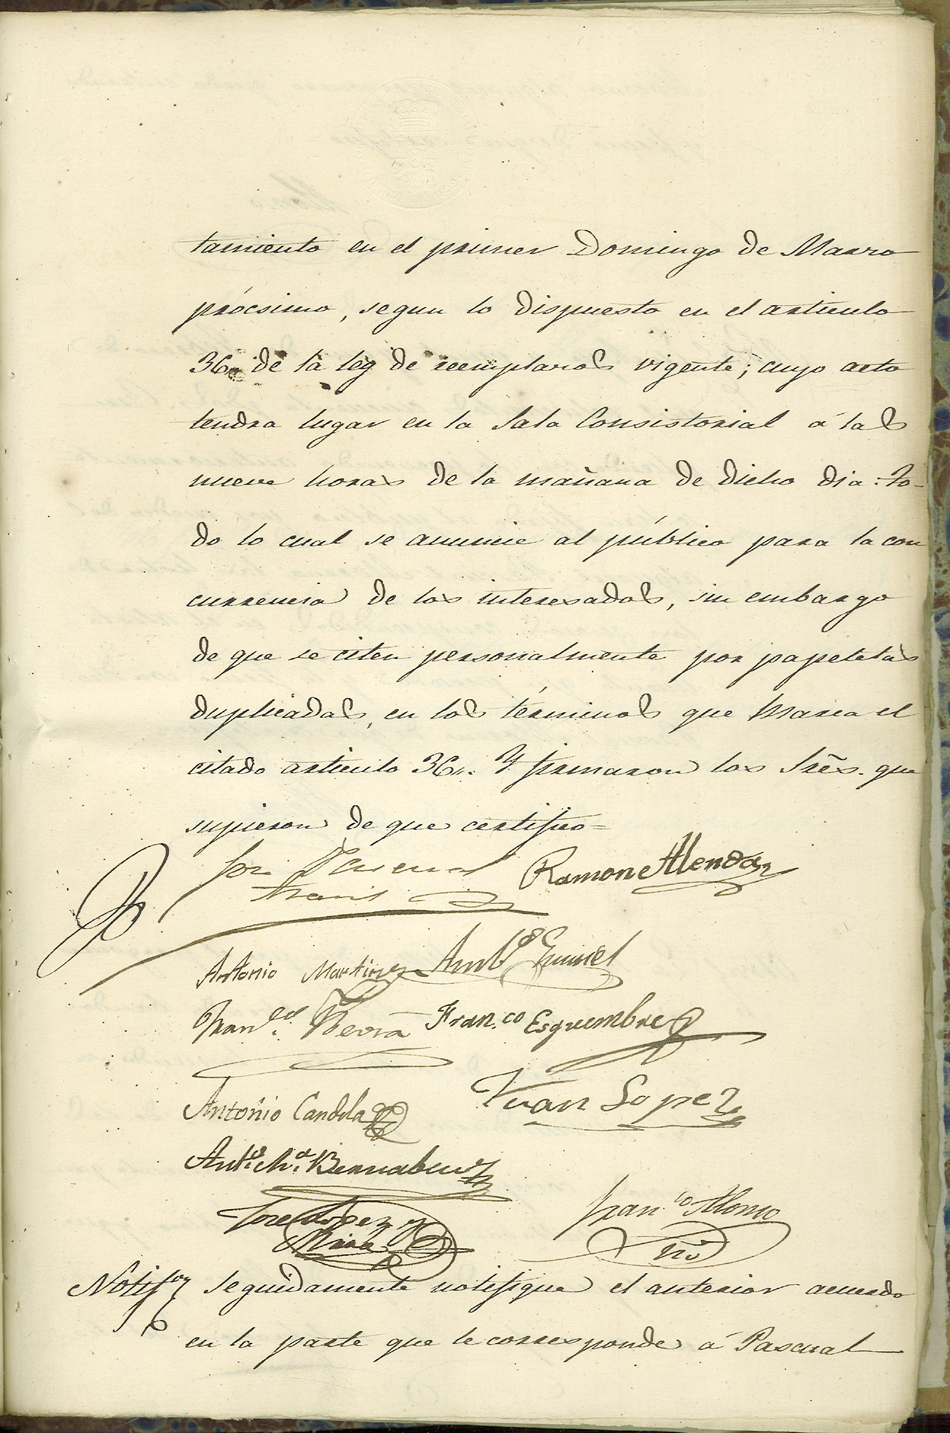 tamiento en el primer Domingo de Marzo
prócsimo, segun lo dispuesto en el articulo
36 de la ley de reemplazos vigente; cuyo acto
tendra lugar en la Sala Consistorial á las
nueve horas de la mañana de dicho dia. To-
do lo cual se anuncie al público para la con
currencia de los interesados, sin embargo
de que se citen personalmente por papeletas
duplicadas, en los términos que Marca el
citado articulo 36. Y firmaron los Sres. que
supieron de que certifico=
José Pascual Ramon Alendá
Antonio Martinez Ambo
Franco Francco Esquembre
Antonio Candela Juan Lopez
Anto Ma Bernabeu
Jose Lopez y Franco Alonso
Mira
Notifon Seguidamente notifique el anterior acuerdo
en la parte que le corresponde á Pascual